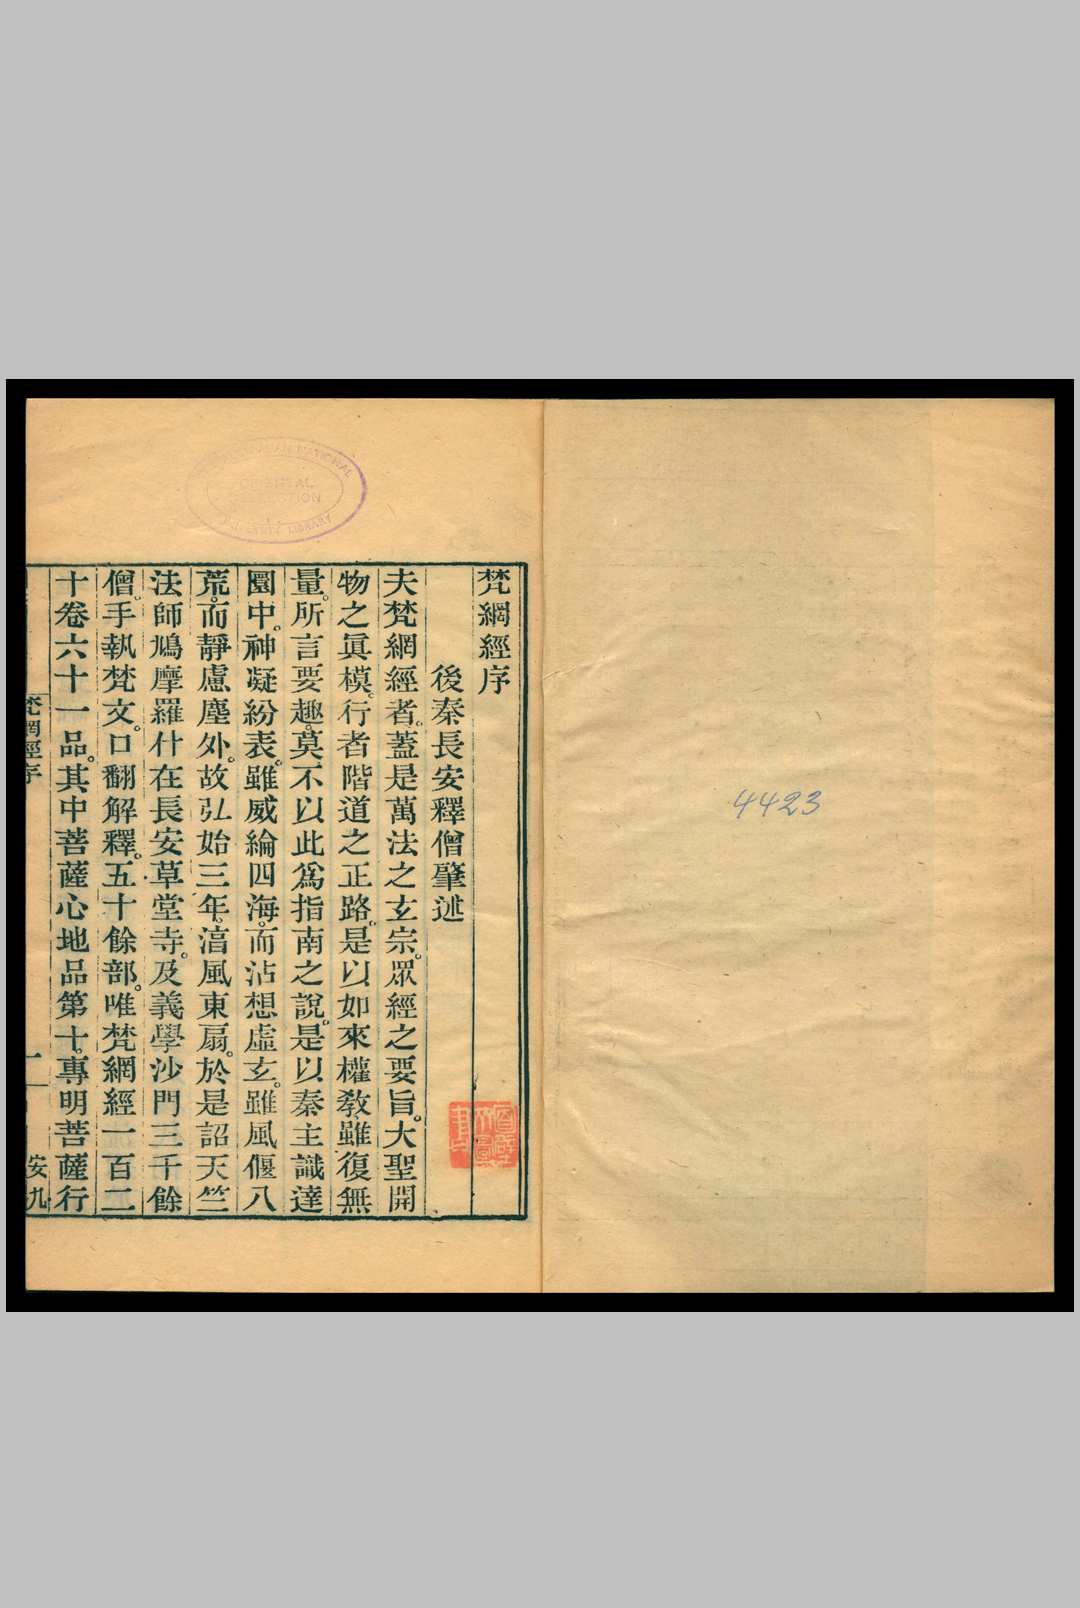 4423
梵網經序
後秦長安釋僧肇述
夫梵網經者。蓋是萬法之玄宗。眾經之要旨。大聖開
物之眞模。行者階道之正路。是以如來權敎。雖復無
量。所言要趣。莫不以此爲指南之說。是以秦主識達
圜中。神凝紛表。雖威綸四海。而沾想虛玄。雖風偃八
荒。而靜慮塵外。故弘始三年。淯風東扇。於是詔天竺
法師鳩摩羅什在長安草堂寺。及義學沙門三千餘
僧。手執梵文。口翻解釋。五十餘部。唯梵網經一百二
十卷六十一品。其中菩薩心地品第十。專明菩薩行
梵網經序 一 安九
NATIONAL
ORIENTAL
COLLECTION
LIBRARY